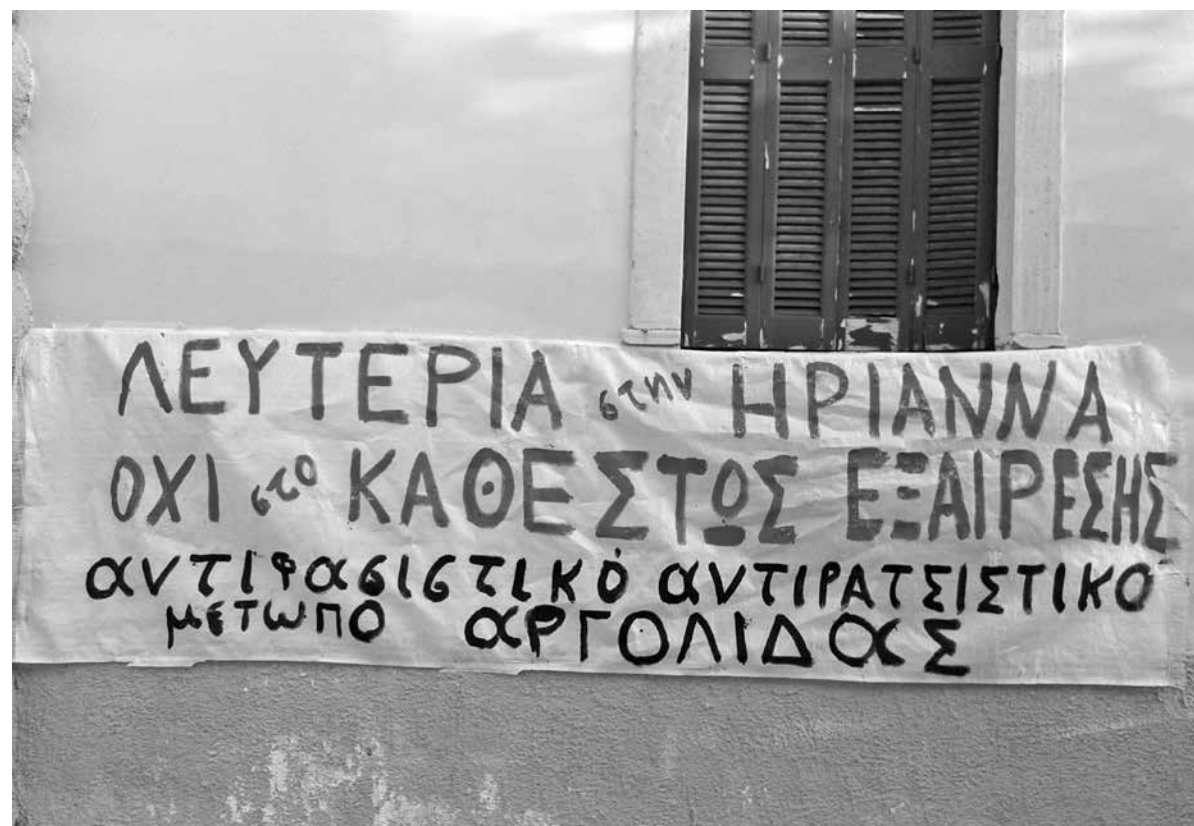 ΛΕΥΤΕΡΙΑ στην ΗΡΙΑΝΝΑ
ΟΧΙ στο ΚΑΘΕΣΤΩΣ ΕΞΑΙΡΕΣΗΣ
αντιφασιστικό αντιΡΑΤΣΙΣΤΙΚΟ
μετωπο αΡΓΟΛΙΔαΣ